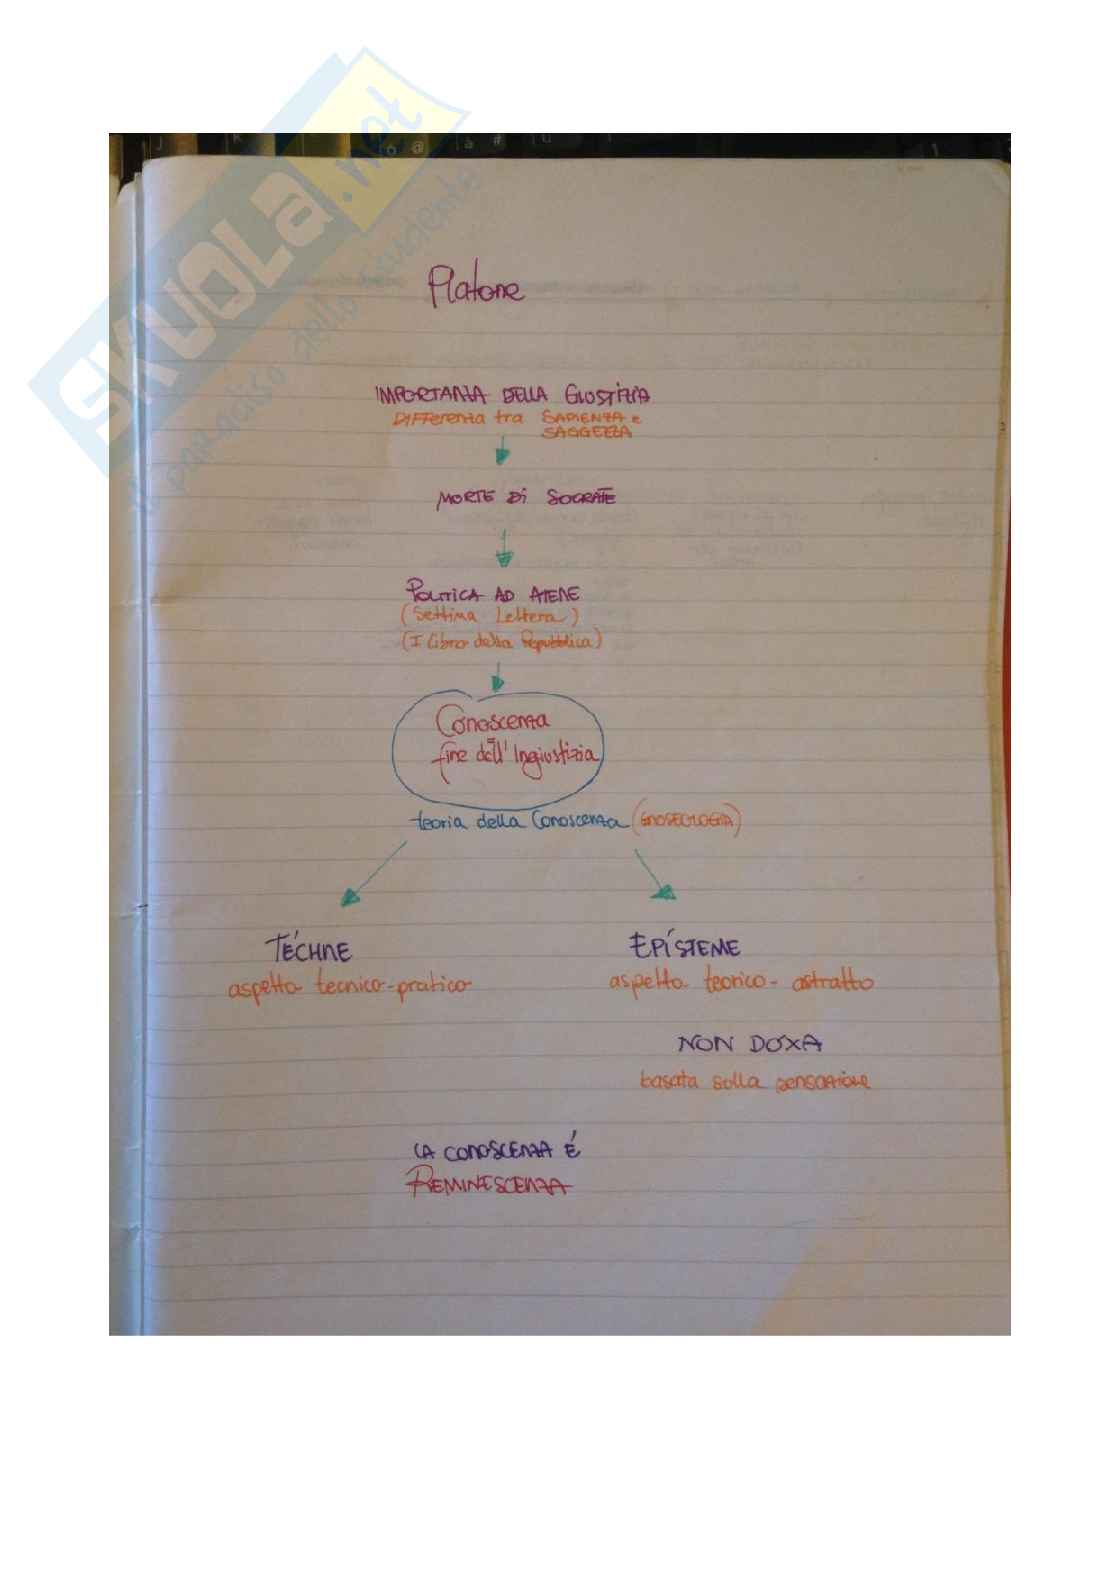 SKUOLA.net
il paradiso dello studente
Platone
IMPORTANZA DELLA GIUSTIZIA
DIFFerenza tra SAPIENZA e
SAGGEZZA
MORTE Di SOCRATE
POLITICA AD ATENE
(Settima Lettera)
(I Libro della Repubblica)
Conoscenza
=
fine dell'Ingiustizia
teoria della Conoscenza (GNOSEOLOGIA)
TÉCHNE
EPÍSTEME
aspetto tecnico-pratico
aspetto teorico-astratto
NON DOXA
basata sulla sensazione
LA CONOSCENZA É
REMINESCENZA